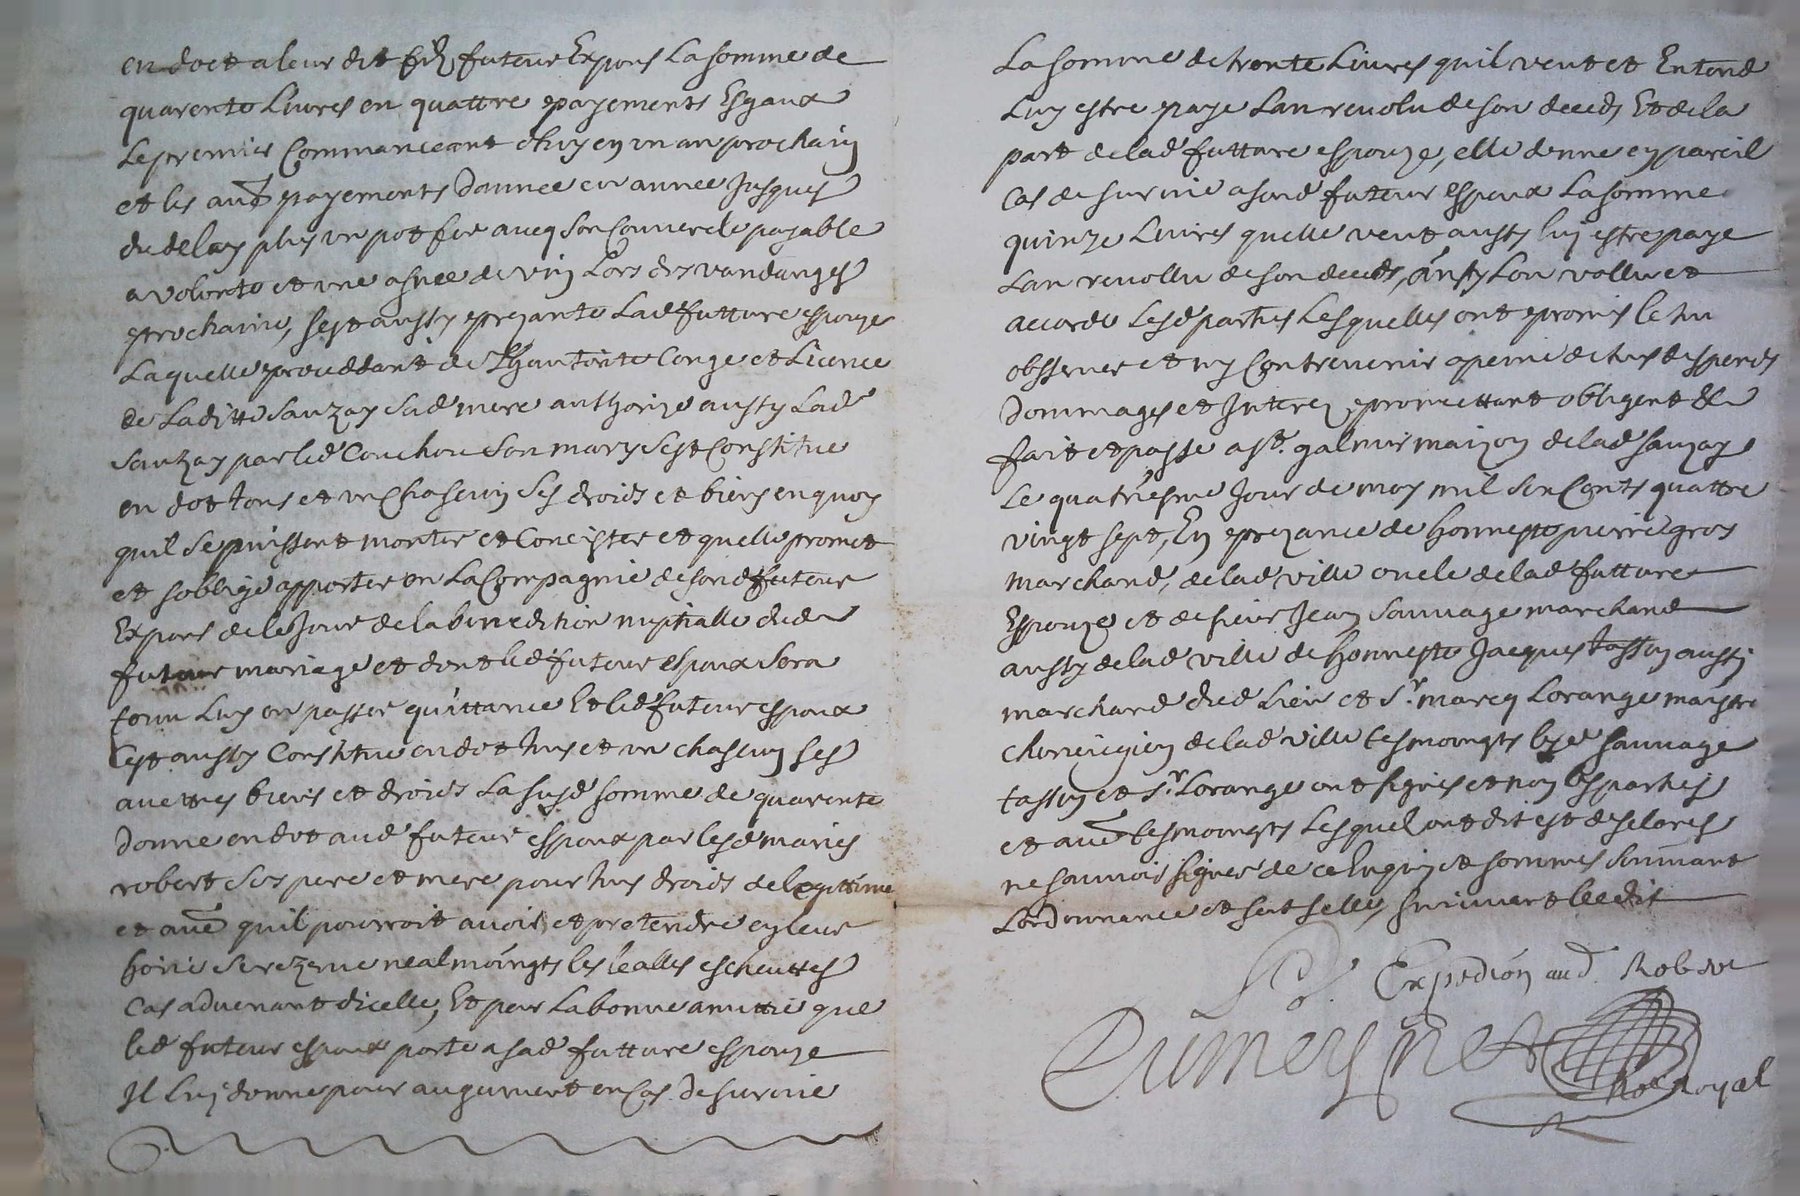 en doct a leur dit filz futeur Expous La somme de
quarente Livres en quattre payements Esgaux
Le premier Commanceant d'huy en un an prochain
et les aues payements D'annee en annee Jusques
du delay plus un pot fer avecq son Couvercle payable
a volonte et une asnee de vin Lors des vandanges
prochaine, s'est aussy prezante Lad futture espouze
Laquelle proceddant de L'hautorite Conge et Licence
de Laditte Sauzay sad mere authorize aussy Lad
Sauzay par led Couchou son mary s'est Constitue
en dot tous et un Chascun ses droids et biens en quoy
qu'il se puissent monter et Concister et quelle promet
et s'obblige apporter en La Compagnie de sond futeur
Expoux de le Jour de la benedition nuptialle dud
futeur mariage et dont led futeur espoux sera
tenu Luy en passer quittance Et led futeur espoux
C'est aussy Constitue en dot tous et un chascun ses
auettres biens et droids La susd somme de quarente
donne en dot aud futeur espoux par lesd maries
robert ses pere et mere pour tous droids de legittime
et aue qu'il pourroit avoir et pretendre en leur
hoirie se rezerve nealmoingts les lealles escheuttes
Cas advenant d'icelle, Et pour La bonne amittie que
led futeur espoux porte a sad futture espouze
Il Luy donne pour augument en Cas De survie
La somme de trente Livres qu'il veut et Entend
Luy estre paye L'an revolu de son deceds Et de la
part de lad futture espouze, elle donne en pareil
Cas de survie a sond futeur espoux La somme
quinze Livres quelle veut aussy luy estre paye
L'an revollu de son deceds, ainsy L'on vollu et
accorde Lesd parties Lesquelles ont promis le tou
observer et n'y Contrevenir a peine de tous despends
Dommages et Interez promettant obligent &c
fait et passe a St. galmier maizon de lad sauzay
Le quatriesme Jour de may mil six Cents quattre
vingt sept, En prezance de honneste pierre gros
marchand, de lad ville oncle de lad futture
Espouze et de sieur Jean Sauvage marchand
aussy de lad ville de honneste Jacques tassin aussy
marchand dud Lieu et Sr. marcq Lorange maistre
chirurgien de lad ville tesmoingts lesd sauvage
tassin et Sr. Lorange ont signes et non les parties
et aue tesmoingts Lesquel ont dit et desclares
ne scavoir signer de ce Enquis et sommes suivant
L'ordonnance et scelle, suivant l'eedit
Expedion aud Robert
Dumeysnet
No.re Royal